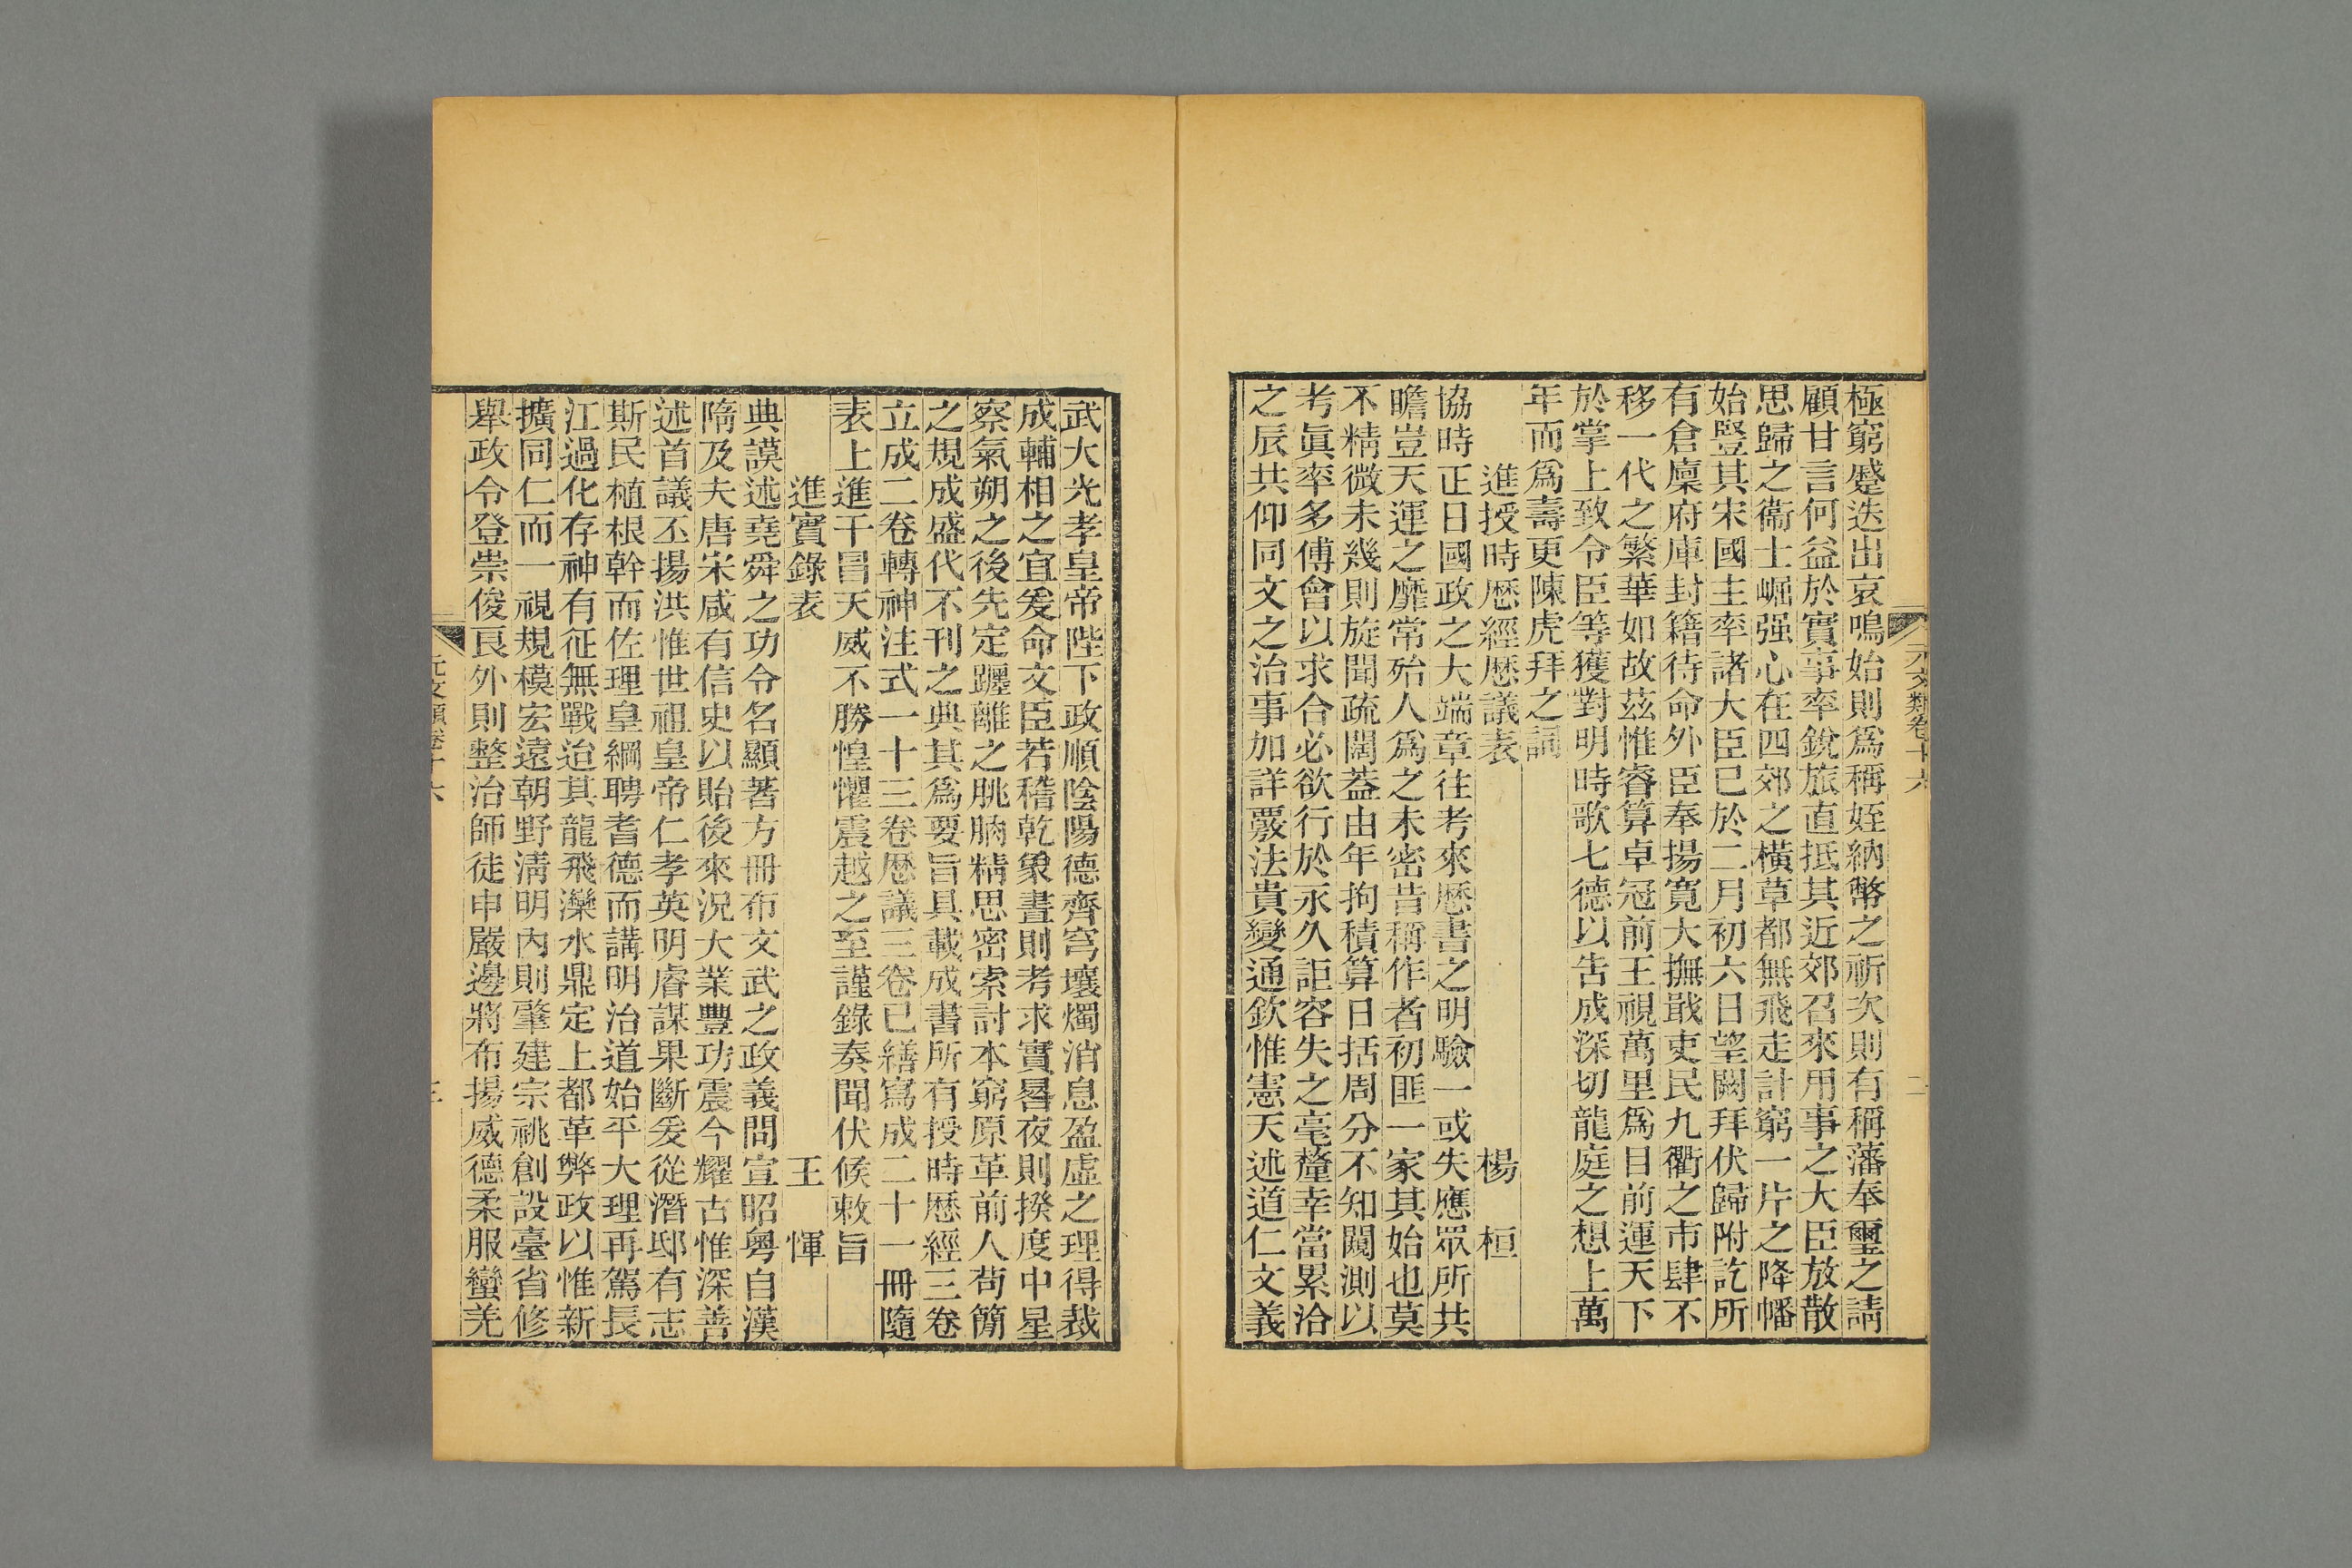 元文類卷十六
二
極窮蹙迭出哀鳴始則爲稱姪納幣之祈次則有稱藩奉璽之請
顧甘言何益於實事率銳旅直抵其近郊召來用事之大臣放散
思歸之衞士崛强心在四郊之橫草都無飛走計窮一片之降幡
始豎其宋國主率諸大臣已於二月初六日望闕拜伏歸附訖所
有倉廩府庫封籍待命外臣奉揚寬大撫戢吏民九衢之市肆不
移一代之繁華如故茲惟睿算卓冠前王視萬里爲目前運天下
於掌上致令臣等獲對明時歌七德以告成深切龍庭之想上萬
年而爲壽更陳虎拜之詞
進授時歷經歷議表 楊 桓
協時正日國政之大端章往考來歷書之明驗一或失應眾所共
瞻豈天運之靡常殆人爲之未密昔稱作者初匪一家其始也莫
不精微未幾則旋聞疏闊蓋由年拘積算日括周分不知闚測以
考眞率多傅會以求合必欲行於永久詎容失之毫釐幸當累洽
之辰共仰同文之治事加詳覈法貴變通欽惟憲天述道仁文義
武大光孝皇帝陛下政順陰陽德齊穹壤燭消息盈虛之理得裁
成輔相之宜爰命文臣若稽乾象晝則考求實晷夜則揆度中星
察氣朔之後先定躔離之朓朒精思密索討本窮原革前人苟簡
之規成盛代不刊之典其爲要旨具載成書所有授時歷經三卷
立成二卷轉神注式一十三卷歷議三卷已繕寫成二十一冊隨
表上進干冒天威不勝惶懼震越之至謹錄奏聞伏候敕旨
進實錄表 王 惲
典謨述堯舜之功令名顯著方冊布文武之政義問宣昭粵自漢
隋及夫唐宋咸有信史以貽後來況大業豐功震今耀古惟深善
述首議丕揚洪惟世祖皇帝仁孝英明睿謀果斷爰從潛邸有志
斯民植根幹而佐理皇綱聘耆德而講明治道始平大理再駕長
江過化存神有征無戰迨其龍飛灤水鼎定上都革弊政以惟新
擴同仁而一視規模宏遠朝野淸明內則肇建宗祧創設臺省修
舉政令登崇俊良外則整治師徒申嚴邊將布揚威德柔服蠻羌
元文類卷十六
三